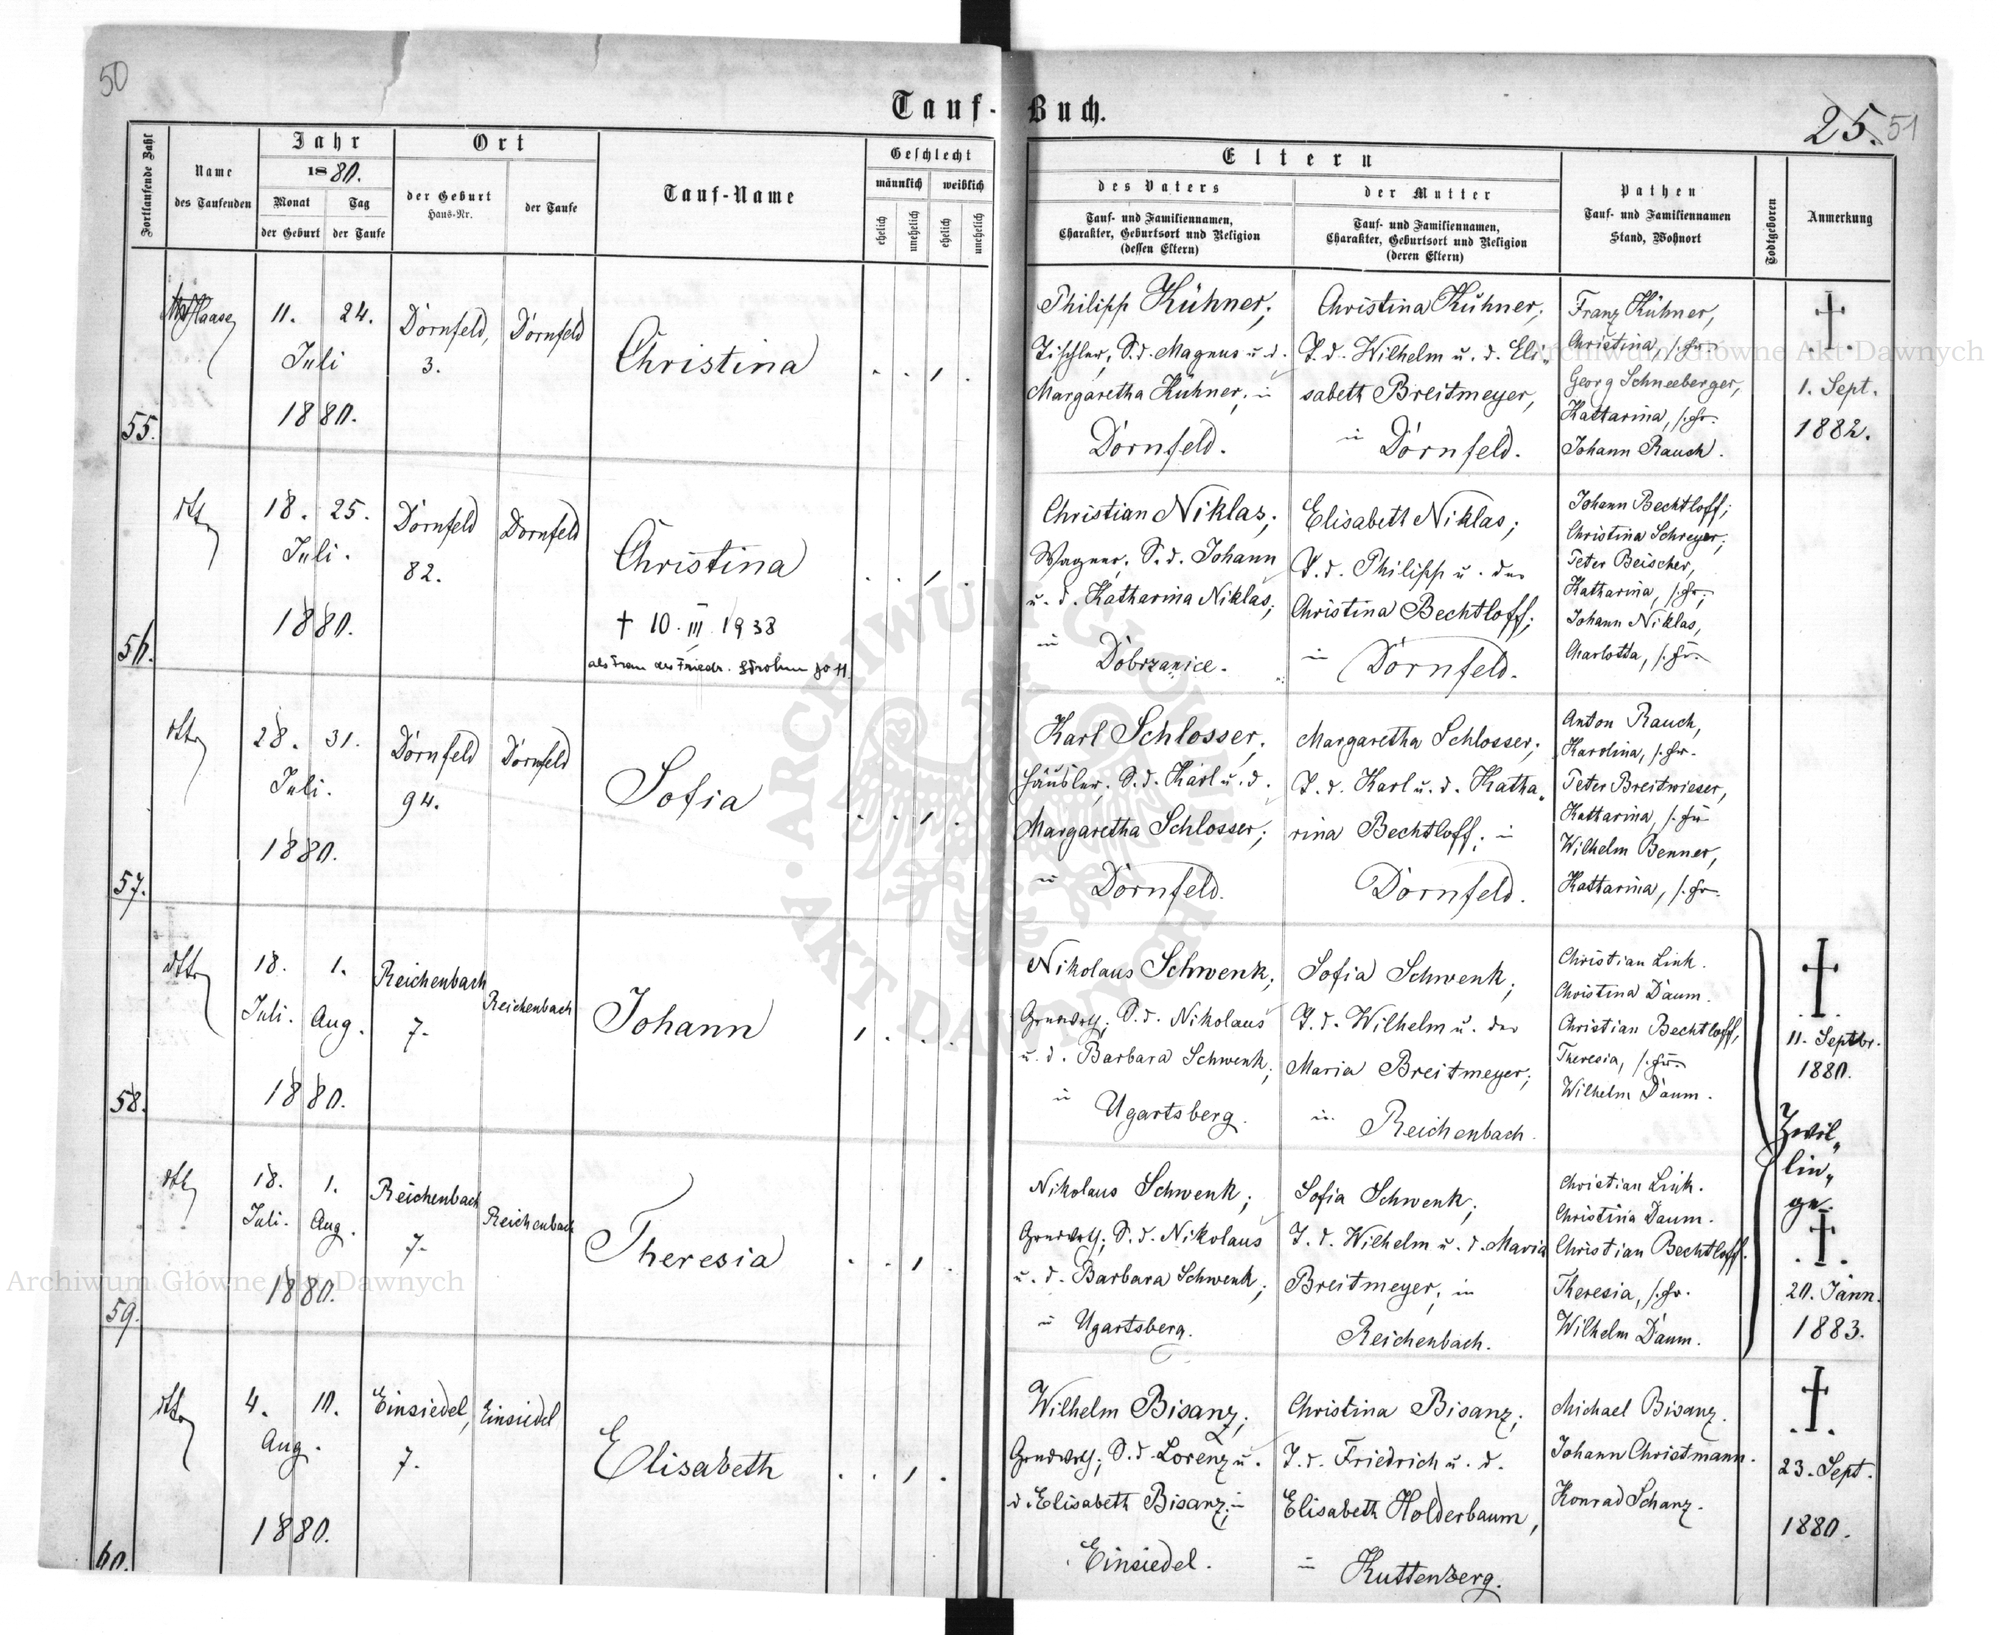 50
Tauf-Buch.
25. 51
Fortlaufende Zahl
Name
des Taufenden
Jahr
1880.
Monat
Tag
der Geburt
der Taufe
Ort
der Geburt
Haus-Nr.
der Taufe
Tauf-Name
Geschlecht
männlich
weiblich
ehelich
unehelich
ehelich
unehelich
Eltern
des Vaters
Tauf- und Familiennamen,
Charakter, Geburtsort und Religion
(dessen Eltern)
der Mutter
Tauf- und Familiennamen,
Charakter, Geburtsort und Religion
(deren Eltern)
Pathen
Tauf- und Familiennamen
Stand, Wohnort
Todtgeboren
Anmerkung
55.
Haase
11. 24.
Juli
1880.
Dornfeld,
3.
Dornfeld
Christina
Philipp Kühner;
Tischler, S.d. Magnus u. d.
Margaretha Kühner; in
Dornfeld.
Christina Kühner;
T.d. Wilhelm u. d. Eli-
sabeth Breitmeyer,
in Dornfeld.
Franz Kühner,
Christina, s. Fr.
Georg Schneeberger,
Kattarina, s. Fr.
Johann Rauch.
†
1. Sept.
1882.
56.
dtto
18. 25.
Juli.
1880.
Dornfeld
82.
Dornfeld
Christina
† 10. III. 1938
als Frau des Friedr.
Christian Niklas;
Wagner; S.d. Johann
u. d. Katharina Niklas;
in Dobrzanice.
Elisabeth Niklas;
T.d. Philipp u. der
Christina Bechtloff;
in Dornfeld.
Johann Bechtloff;
Christina Schreyer;
Peter Beischer,
Katharina, s. Fr.;
Johann Niklas,
Charlotta, s. Fr.
57.
dtto
28. 31.
Juli.
1880.
Dornfeld
94.
Dornfeld
Sofia
Karl Schlosser,
Häusler, S.d. Karl u. d.
Margaretha Schlosser;
in Dornfeld.
Margaretha Schlosser;
T.d. Karl u. d. Katha-
rina Bechtloff; in
Dornfeld.
Anton Rauch,
Karolina, s. Fr.
Peter Breitwieser,
Kattarina, s. Fr.
Wilhelm Benner,
Kattarina, s. Fr.
58.
dtto
18. 1.
Juli. Aug.
1880.
Reichenbach
7.
Reichenbach
Johann
Nikolaus Schwenk;
Grundwth; S.d. Nikolaus
u. d. Barbara Schwenk;
in Ugartsberg.
Sofia Schwenk;
T.d. Wilhelm u. der
Maria Breitmeyer;
in Reichenbach.
Christian Link.
Christina Daum.
Christian Bechtloff,
Theresia, s. Fr.
Wilhelm Daum.
†
11. Septbr.
1880.
Zwil-
lin-
ge.
59.
dtto
18. 1.
Juli. Aug.
1880.
Reichenbach
7.
Reichenbach
Theresia
Nikolaus Schwenk;
Grundwth; S.d. Nikolaus
u. d. Barbara Schwenk;
in Ugartsberg.
Sofia Schwenk;
T.d. Wilhelm u. d. Maria
Breitmeyer, in
Reichenbach.
Christian Link.
Christina Daum.
Christian Bechtloff.
Theresia, s. Fr.
Wilhelm Daum.
†
20. Jänn.
1883.
60.
dtto
4. 10.
Aug.
1880.
Einsiedel,
7.
Einsiedel
Elisabeth
Wilhelm Bisanz;
Grundwth; S.d. Lorenz u.
d. Elisabeth Bisanz; in
Einsiedel.
Christina Bisanz;
T.d. Friedrich u. d.
Elisabeth Holderbaum,
in Kuttenberg.
Michael Bisanz.
Johann Christmann.
Konrad Schanz.
†
23. Sept.
1880.
Archiwum Główne Akt Dawnych
Archiwum Główne Akt Dawnych
ARCHIWUM GŁÓWNE AKT DAWNYCH